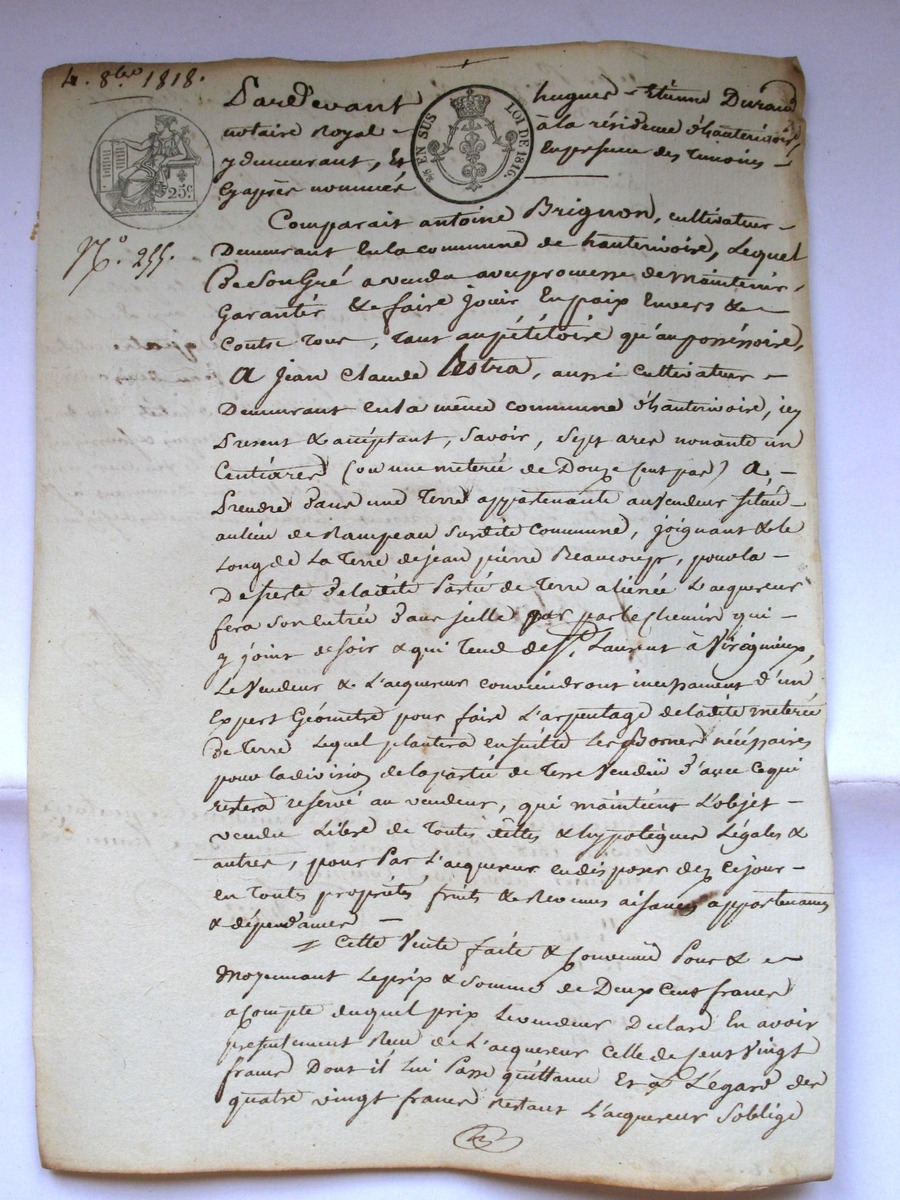 4. 8bre 1818.
Pardevant hugues - Etienne Durand
notaire Royal - à la résidence d'hauterivoire,
y demeurant, Et En presence des Temoins -
Cy après nommés
25 EN SUS LOI DE 1816.
25 c.
N.o 255.
Comparait antoine Brignon, cultivateur -
Demeurant En la commune de hauterivoire, Lequel
De Son Gré a vendu avec promesse de maintenir,
Garantir & de faire jouir En paix Envers & -
Contre Tous, tant au pétitoire qu'au possessoire,
A Jean Claude Lestra, aussi Cultivateur -
Demeurant En la même commune d'hauterivoire, icy
Present & acceptant, Savoir, Sept ares nonante un
Centiares (ou une meterée de Douze Cent pas) A -
Prendre Dans une Terre appartenante au vendeur Située
au lieu de Rampeau Susdite Commune, joignant & le
Long de La Terre de jean pierre Beaucoup, pour la -
Deserte de ladite Partie de Terre aliénée L'acquereur
fera Son Entrée Dans icelle par par le chemin qui -
y joint de soir & qui Tend de St. Laurent à Viregnieux,
Le Vendeur & L'acquereur conviendront incessament d'un
Expert Géometre pour faire L'arpentage de ladite meterée
De Terre Lequel plantera en suitte Les Bornes nécéssaires
pour la division de la partie de Terre Vendue D'avec Ce qui
restera reservé au vendeur, qui maintient L'objet -
vendu Libre de Toutes dettes & hypotèques Légales &
autres, pour Par L'acquereur en disposer dez ce jour -
en Toutes propriétés fruits & Revenus aisances appartenances
& dépendances -
= Cette Vente faite & Convenue Pour & -
Moyennant Le prix & Somme de Deux Cent francs
a Compte duquel prix Le vendeur Declare En avoir
presentement Reçu de L'acquereur Celle de Cent Vingt
francs Dont il Lui Passe quittance Et à L'égard des
quatre vingt francs Restant L'acquereur S'oblige